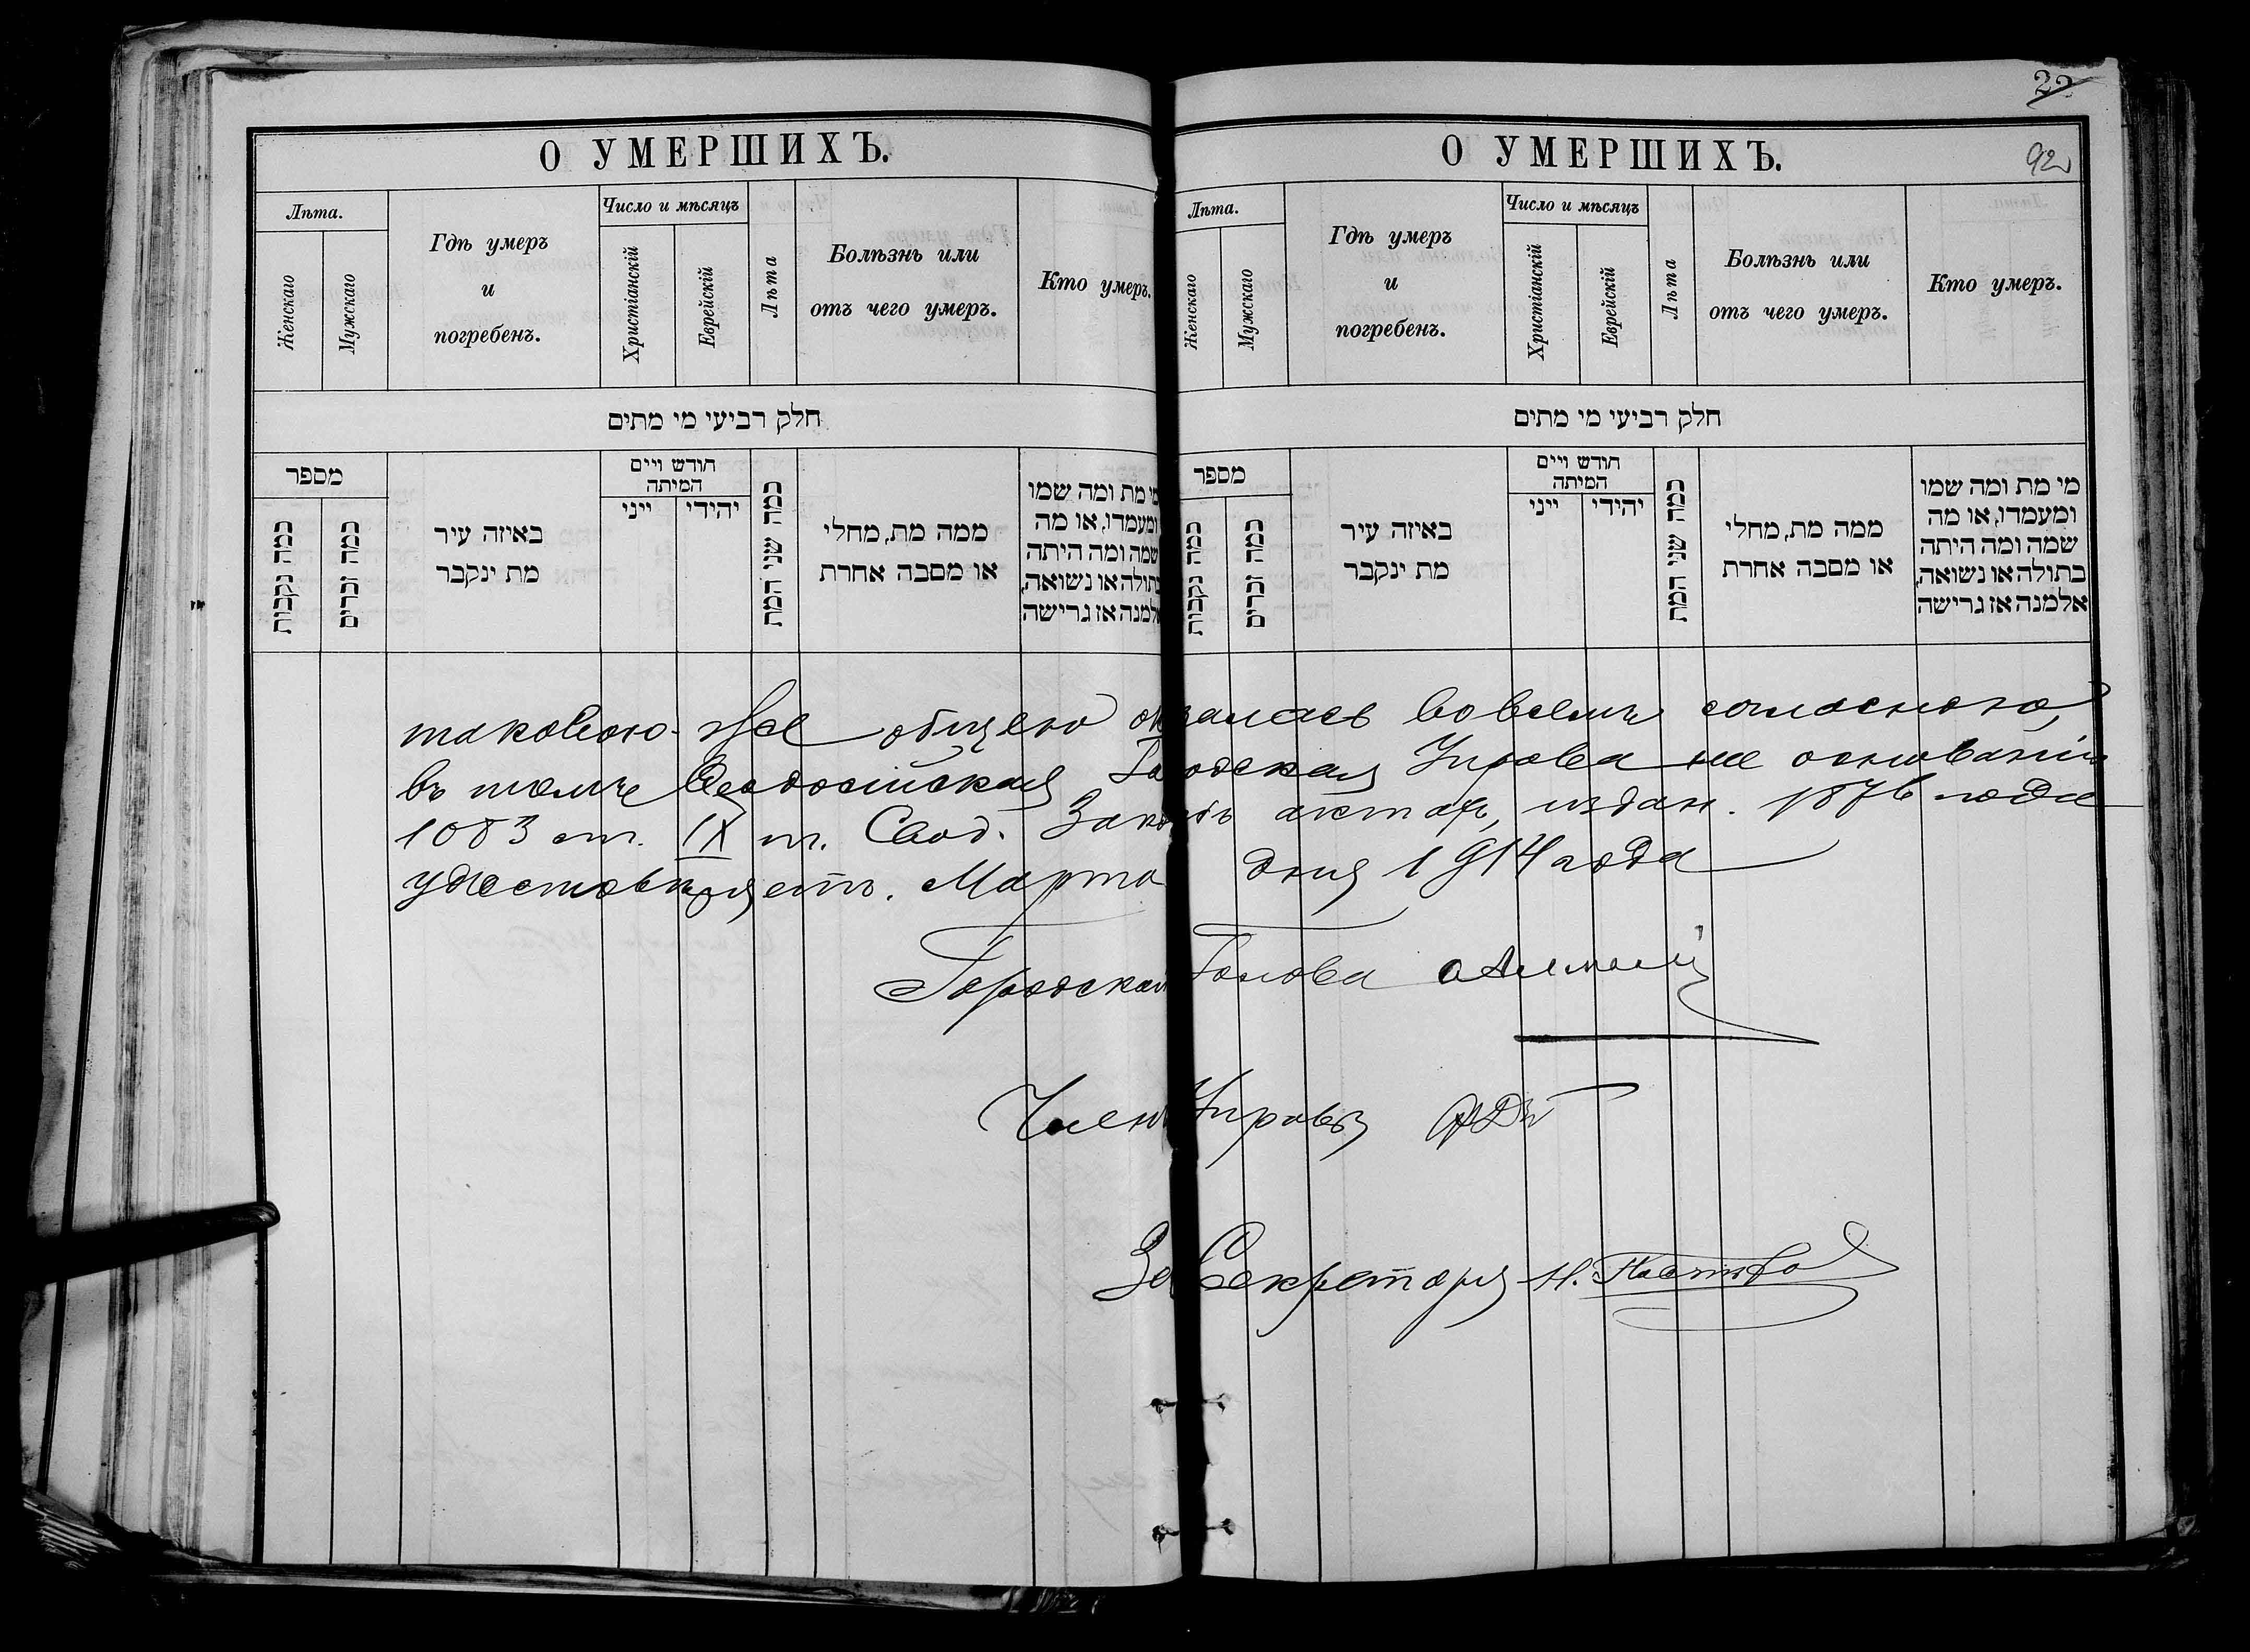 22
О УМЕРШИХЪ.
Лѣта.
Женскаго
Мужскаго
Гдѣ умеръ
и
погребенъ.
Число и мѣсяцъ
Христіанскій
Еврейскій
Лѣта
Болѣзнь или
отъ чего умеръ.
Кто умеръ.
חלק רביעי מי מתים
מספר
כמה נקבות
כמה זכרים
באיזה עיר
מת ינקבר
חודש ויים
המיתה
ייני
יהידי
כמה שני המת
ממה מת, מחלי
או מסבה אחרת
מי מת ומה שמו
ומעמדו, או מה
שמה ומה היתה
בתולה או נשואה,
אלמנה אז גרישה
О УМЕРШИХЪ.
92
Лѣта.
Женскаго
Мужскаго
Гдѣ умеръ
и
погребенъ.
Число и мѣсяцъ
Христіанскій
Еврейскій
Лѣта
Болѣзнь или
отъ чего умеръ.
Кто умеръ.
חלק רביעי מי מתים
מספר
כמה נקבות
כמה זכרים
באיזה עיר
מת ינקבר
חודש ויים
המיתה
ייני
יהידי
כמה שני המת
ממה מת, מחלי
או מסבה אחרת
מי מת ומה שמו
ומעמדו, או מה
שמה ומה היתה
בתולה או נשואה,
אלמנה אז גרישה
таковою-же общею оказалась во всемъ согласною,
въ томъ Ѳеодосійская Городская Управа на основаніи
1083 ст. IX т. Свод. Законовъ о сост., издан. 1876 года
удостовѣряетъ. Марта дня 1914 года
Городской Голова
Членъ Управы
За Секретаря Н.